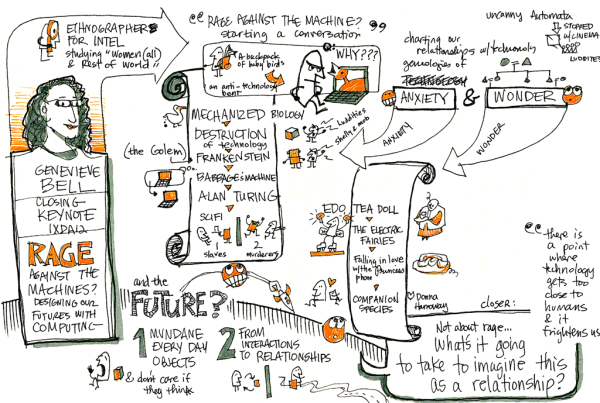 ETHNOGRAPHER
FOR INTEL
studying "Women (all)
& Rest of world"
GENEVIEVE
BELL
CLOSING
KEYNOTE
IXDA12
RAGE
AGAINST THE
MACHINES?
DESIGNING OUR
FUTURES WITH
COMPUTING
"RAGE AGAINST THE MACHINE?
starting a conversation"
A backpack
of baby birds
an anti-technology
bent
WHY???
MECHANIZED BIOLOGY
DESTRUCTION
of technology
Luddites
(the Golem)
FRANKENSTEIN
BABBAGE'S MACHINE
ALAN TURING
SCIFI
1
slaves
2
murderers
uncanny Automata
STOPPED
W/CINEMA
LUDDITES
charting our
relationships w/technology
genealogies of
TECHNOLOGY
ANXIETY & WONDER
ANXIETY
WONDER
EDO TEA DOLL
THE ELECTRIC
FAIRIES
Falling in love
phone
COMPANION
SPECIES
Donna
Haraway
and the
FUTURE?
1 MUNDANE
EVERY DAY
OBJECTS
& don't care if
they think
2 FROM
INTERACTIONS
TO RELATIONSHIPS
1
2
closer:
"there is
a point
where
technology
gets too
close to
humans
& it
frightens us
Not about rage...
What's it going
to take to imagine this
as a relationship?